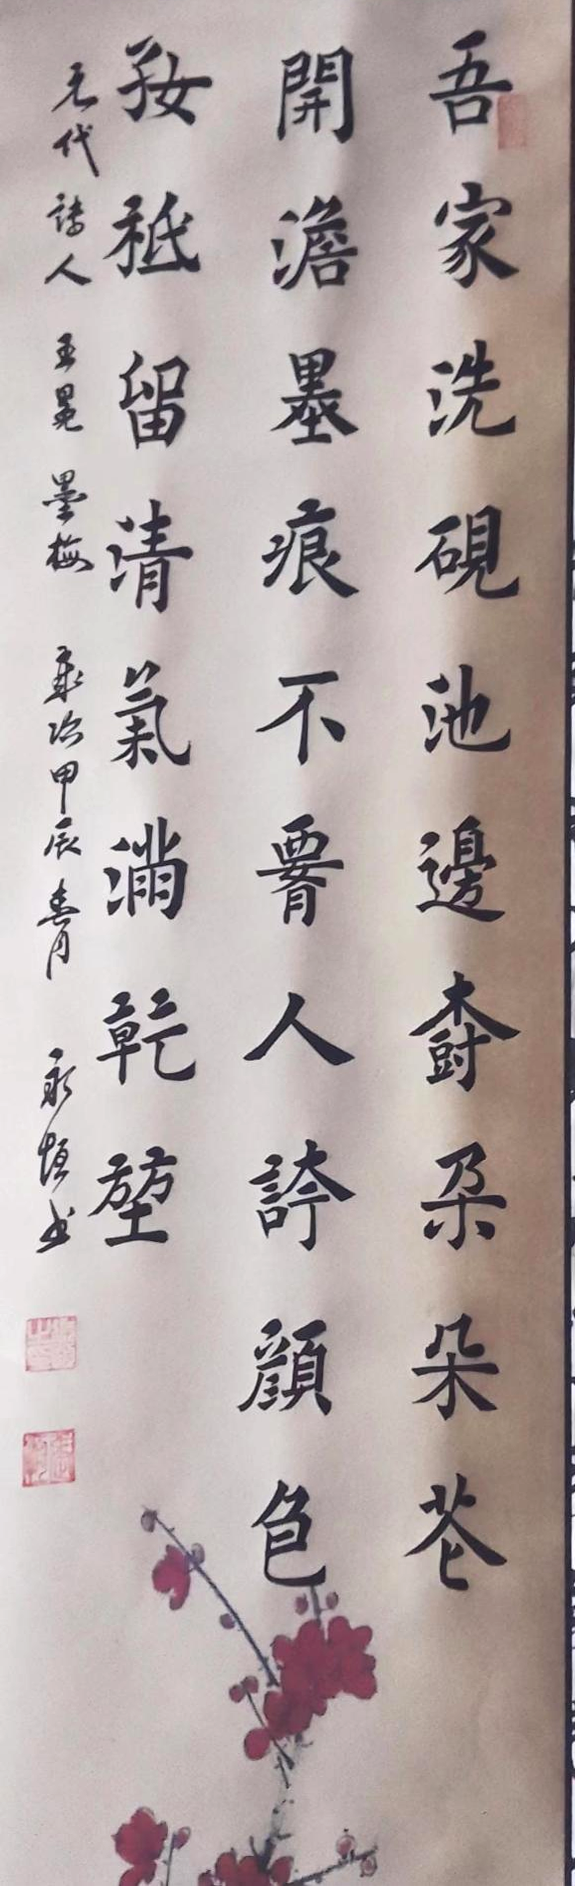 吾家洗硯池邊樹朵朵花
開澹墨痕不要人誇顏色
好秪留清氣滿乾堃
元代詩人 王冕 墨梅 歲次甲辰春月 永 书